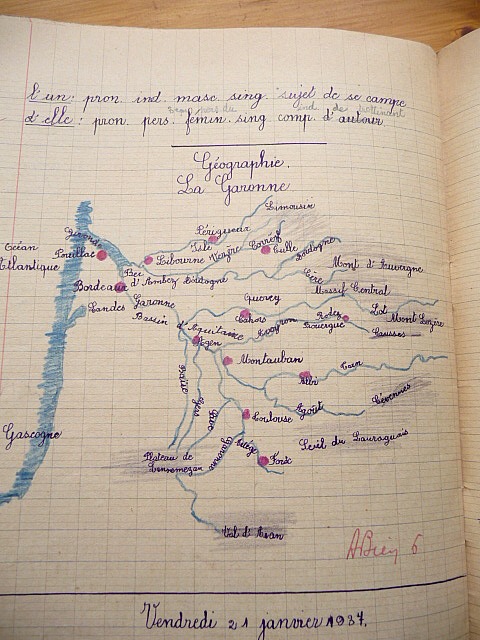 l'un : pron. ind. masc. sing. sujet de se campe
d'elle : pron. pers. fémin. sing comp. d'autour
Géographie.
La Garonne
Limousin
Périgueux
Isle
Vézère
Corrèze
Tulle
Dordogne
Océan
Atlantique
Gironde
Pauillac
Libourne
Bec
d'Ambez
Dordogne
Bordeaux
Cère
Mont d'Auvergne
Massif Central
Landes
Garonne
Quercy
Lot
Mont Lozère
Bassin d'Aquitaine
Cahors
Aveyron
Rodez
Rouergue
Causses
Agen
Montauban
Tarn
Albi
Baïse
Gers
Save
Agoût
Cévennes
Toulouse
Gascogne
Garonne
Ariège
Seuil du Lauraguais
Plateau de
Lannemezan
Foix
Val d'Aran
ABien 6
Vendredi 21 janvier 1937.